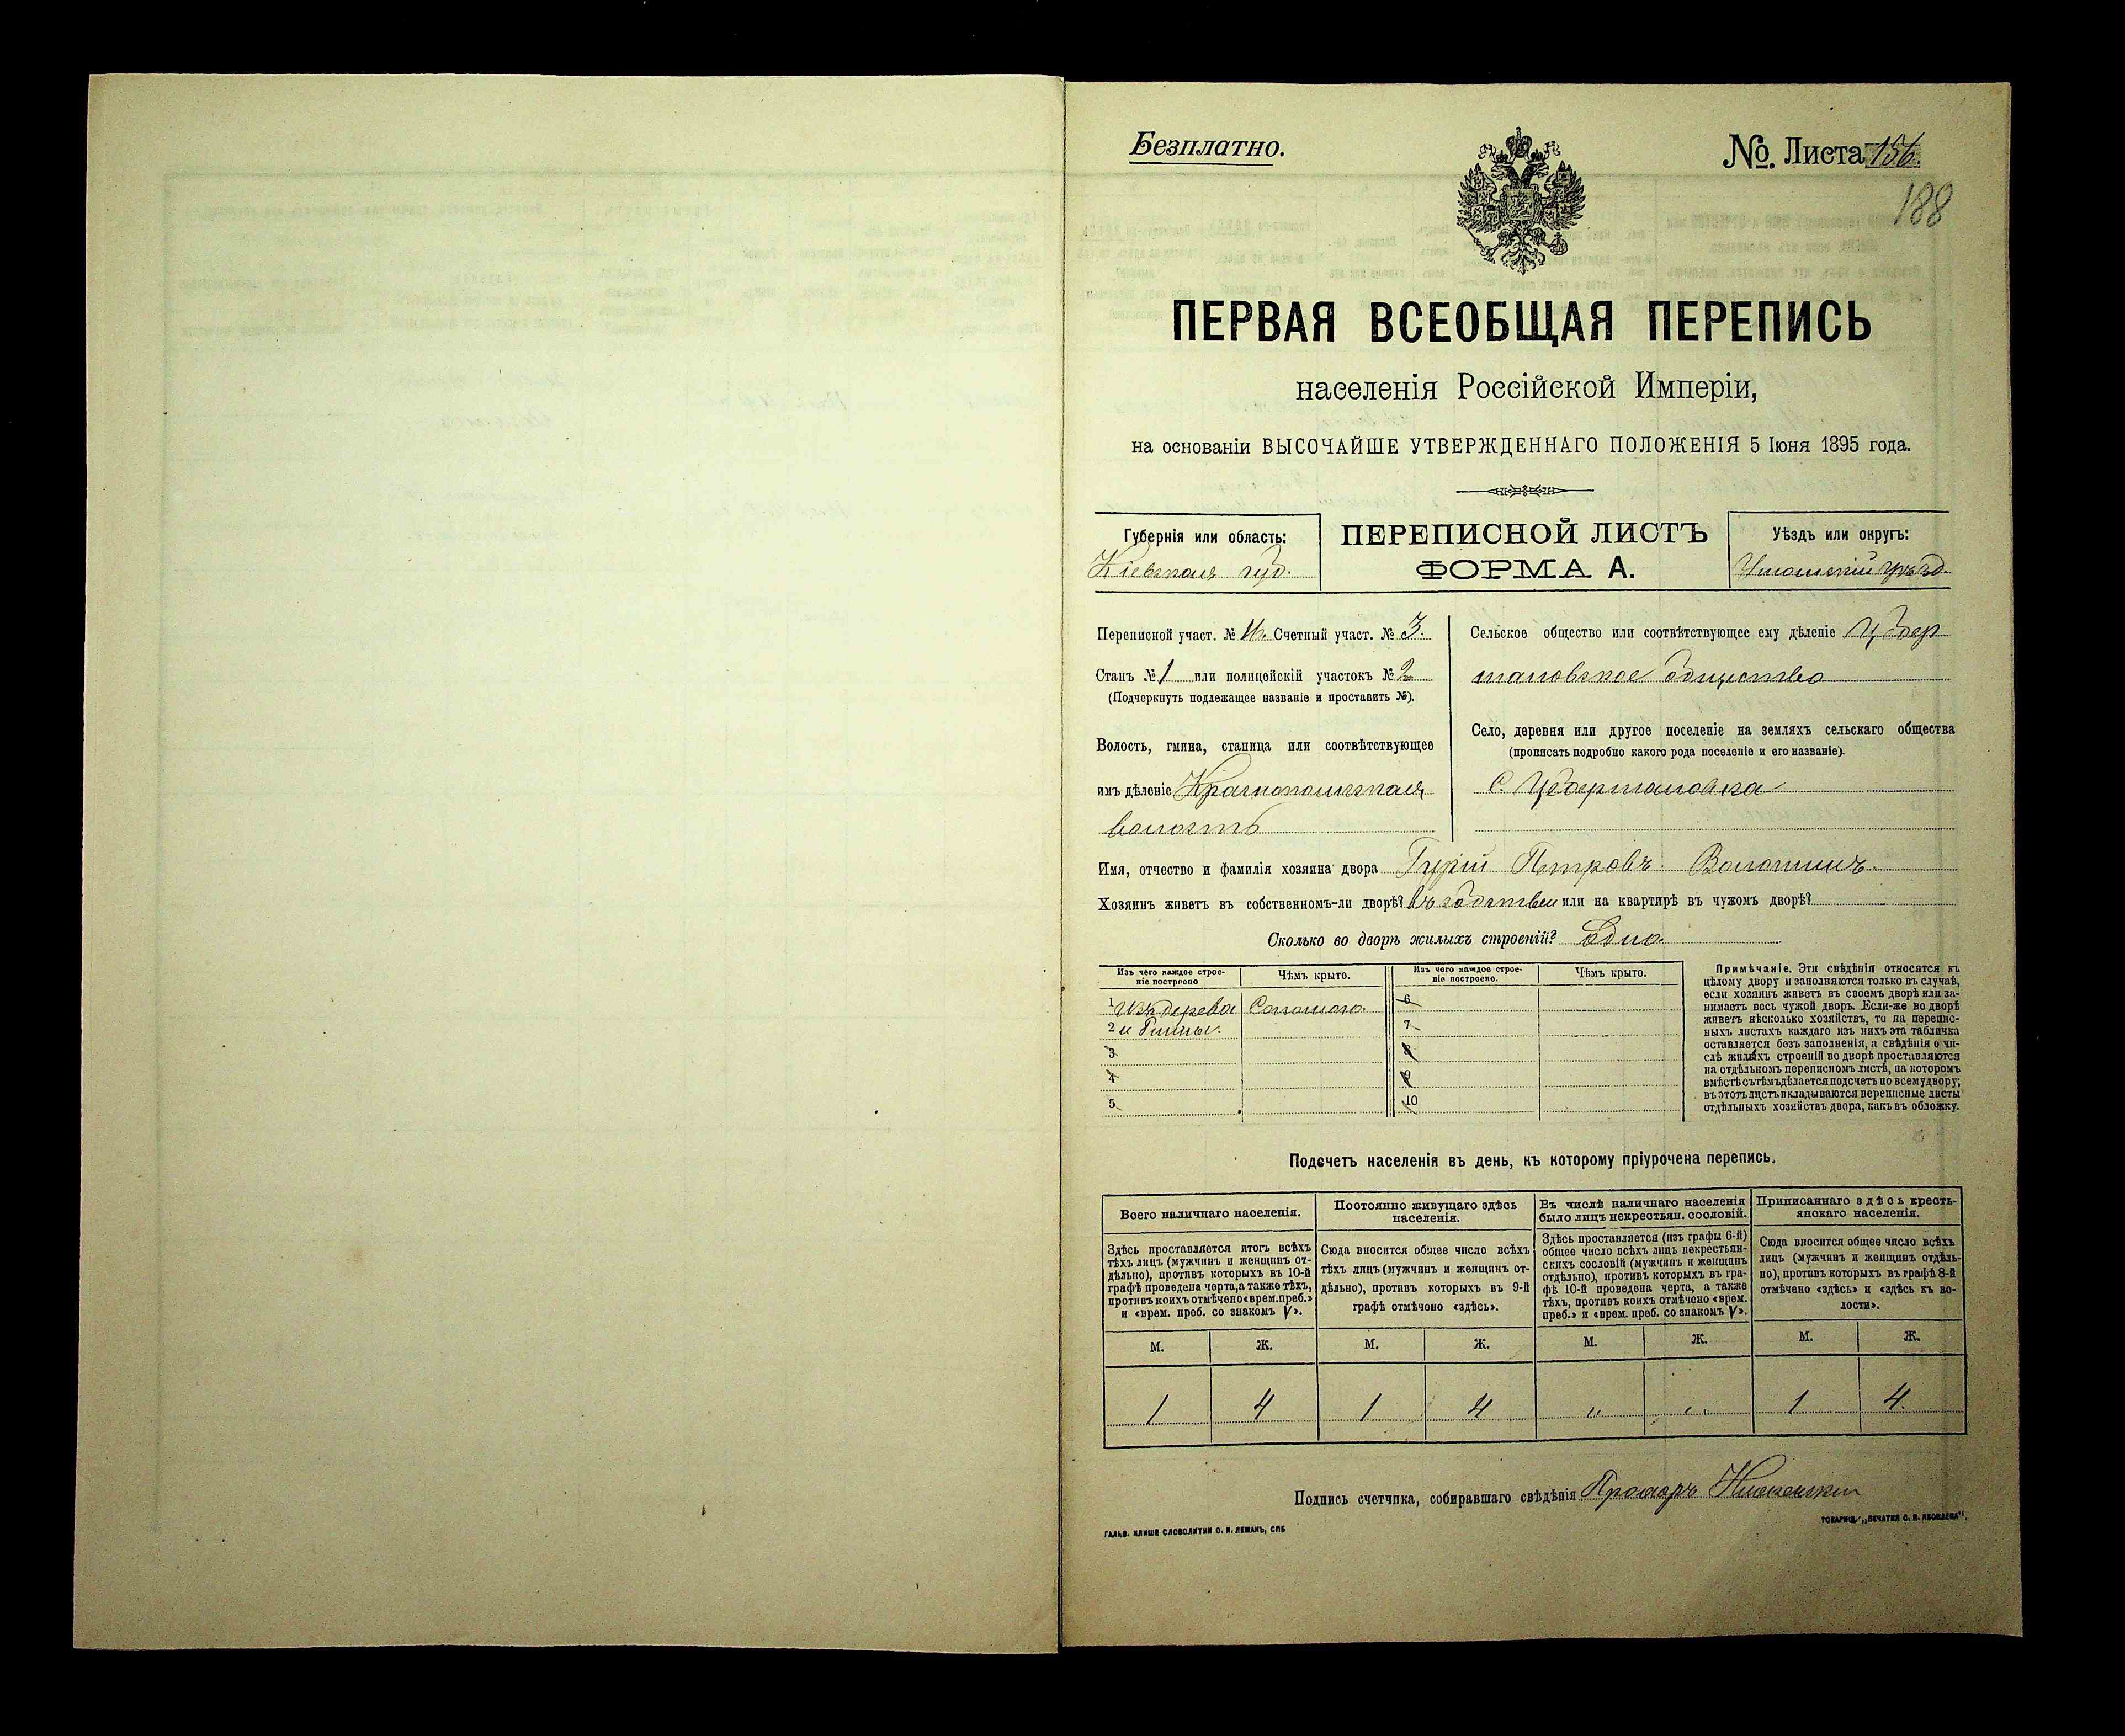 Безплатно.
№. Листа 156.
188
ПЕРВАЯ ВСЕОБЩАЯ ПЕРЕПИСЬ
населенія Россійской Имперіи,
на основаніи ВЫСОЧАЙШЕ УТВЕРЖДЕННАГО ПОЛОЖЕНІЯ 5 Іюня 1895 года.
Губернія или область:
Кіевская губ.
ПЕРЕПИСНОЙ ЛИСТЪ
ФОРМА А.
Уѣздъ или округъ:
Уманскій уѣзд.
Переписной участ. № Счетный участ. № 3.
Станъ № 1 или полицейскій участокъ № 2
(Подчеркнуть подлежащее названіе и проставить №).
Волость, гмина, станица или соотвѣтствующее
имъ дѣленіе Краснопольская
волость
Сельское общество или соотвѣтствующее ему дѣленіе Цебер
мановское общество
Село, деревня или другое поселеніе на земляхъ сельскаго общества
(прописать подробно какого рода поселеніе и его названіе).
С. Цебермановка
Имя, отчество и фамилія хозяина двора Гурій Петровъ Волошинъ.
Хозяинъ живетъ въ собственномъ-ли дворѣ? въ собствен или на квартирѣ въ чужомъ дворѣ?
Сколько во дворѣ жилыхъ строеній? Одно.
Изъ чего каждое строе-
ніе построено
Чѣмъ крыто.
Изъ чего каждое строе-
ніе построено.
Чѣмъ крыто.
1 Изъ дерева Соломою. 6
2 и Глины. 7
3 8
4 9
5 10
Примѣчаніе. Эти свѣдѣнія относятся къ
цѣлому двору и заполняются только въ случаѣ,
если хозяинъ живетъ въ своемъ дворѣ или за-
нимаетъ весь чужой дворъ. Если-же во дворѣ
живетъ нѣсколько хозяйствъ, то на перепис-
ныхъ листахъ каждаго изъ нихъ эта табличка
оставляется безъ заполненія, а свѣдѣнія о чи-
слѣ жилыхъ строеній во дворѣ проставляются
на отдѣльномъ переписномъ листѣ, на которомъ
вмѣстѣ съ тѣмъ дѣлается подсчетъ по всему двору;
въ этотъ листъ вкладываются переписные листы
отдѣльныхъ хозяйствъ двора, какъ въ обложку.
Подсчетъ населенія въ день, къ которому пріурочена перепись.
Всего наличнаго населенія.
Здѣсь проставляется итогъ всѣхъ
тѣхъ лицъ (мужчинъ и женщинъ от-
дѣльно), противъ которыхъ въ 10-й
графѣ проведена черта, а также тѣхъ,
противъ коихъ отмѣчено «врем. преб.»
и «врем. преб. со знакомъ V».
Постоянно живущаго здѣсь
населенія.
Сюда вносится общее число всѣхъ
тѣхъ лицъ (мужчинъ и женщинъ от-
дѣльно), противъ которыхъ въ 9-й
графѣ отмѣчено «здѣсь».
Въ числѣ наличнаго населенія
было лицъ некрестьян. сословій.
Здѣсь проставляется (изъ графы 6-й)
общее число всѣхъ лицъ некрестьян-
скихъ сословій (мужчинъ и женщинъ
отдѣльно), противъ которыхъ въ гра-
фѣ 10-й проведена черта, а также
тѣхъ, противъ коихъ отмѣчено «врем.
преб.» и «врем. преб. со знакомъ V».
Приписаннаго здѣсь кресть-
янскаго населенія.
Сюда вносится общее число всѣхъ
лицъ (мужчинъ и женщинъ отдѣль-
но), противъ которыхъ въ графѣ 8-й
отмѣчено «здѣсь» и «здѣсь къ во-
лости».
М. Ж. М. Ж. М. Ж. М. Ж.
1 4 1 4 " " 1 4
Подпись счетчика, собиравшаго свѣдѣнія
ГАЛЬВ. КЛИШЕ СЛОВОЛИТНИ О. И. ЛЕМАНЪ, СПБ
ТОВАРИЩ. „ПЕЧАТНЯ С. П. ЯКОВЛЕВА".